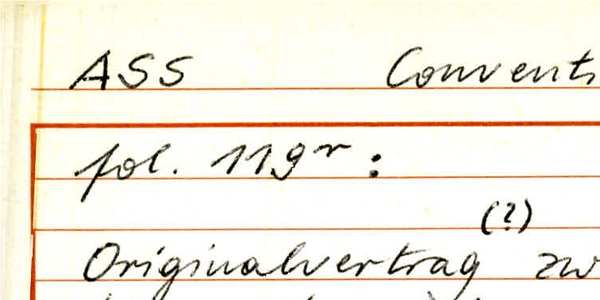 ASS Convents
fol. 119r :
(?)
Originalvertrag zw